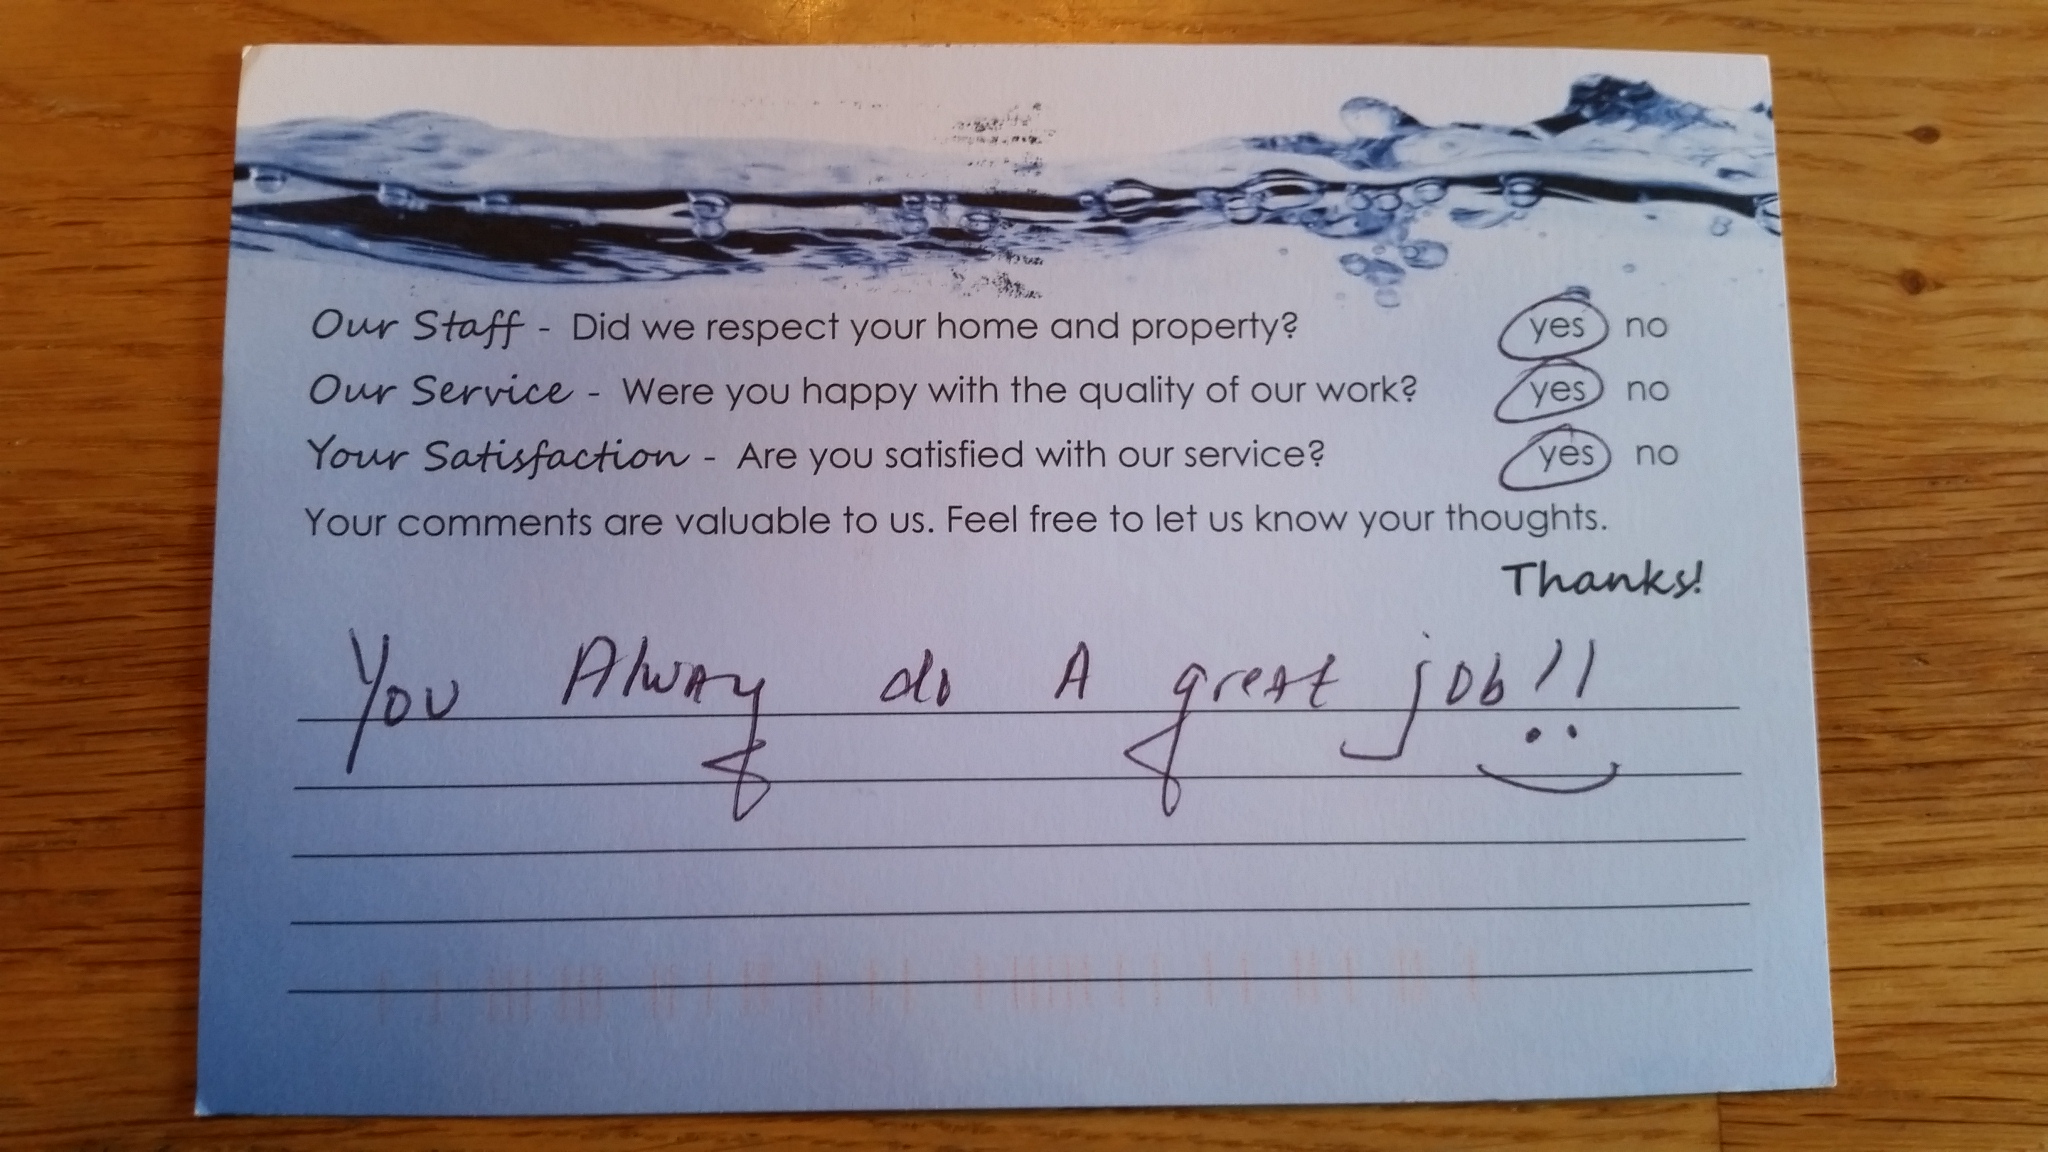 Our Staff - Did we respect your home and property? yes no
Our Service - Were you happy with the quality of our work? yes no
Your Satisfaction - Are you satisfied with our service? yes no
Your comments are valuable to us. Feel free to let us know your thoughts.
Thanks!
You Alway do A great job!!